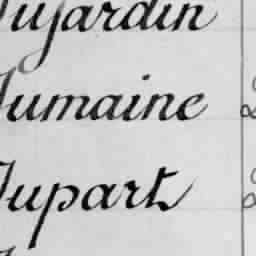 Dujardin
Dumaine
Dupart